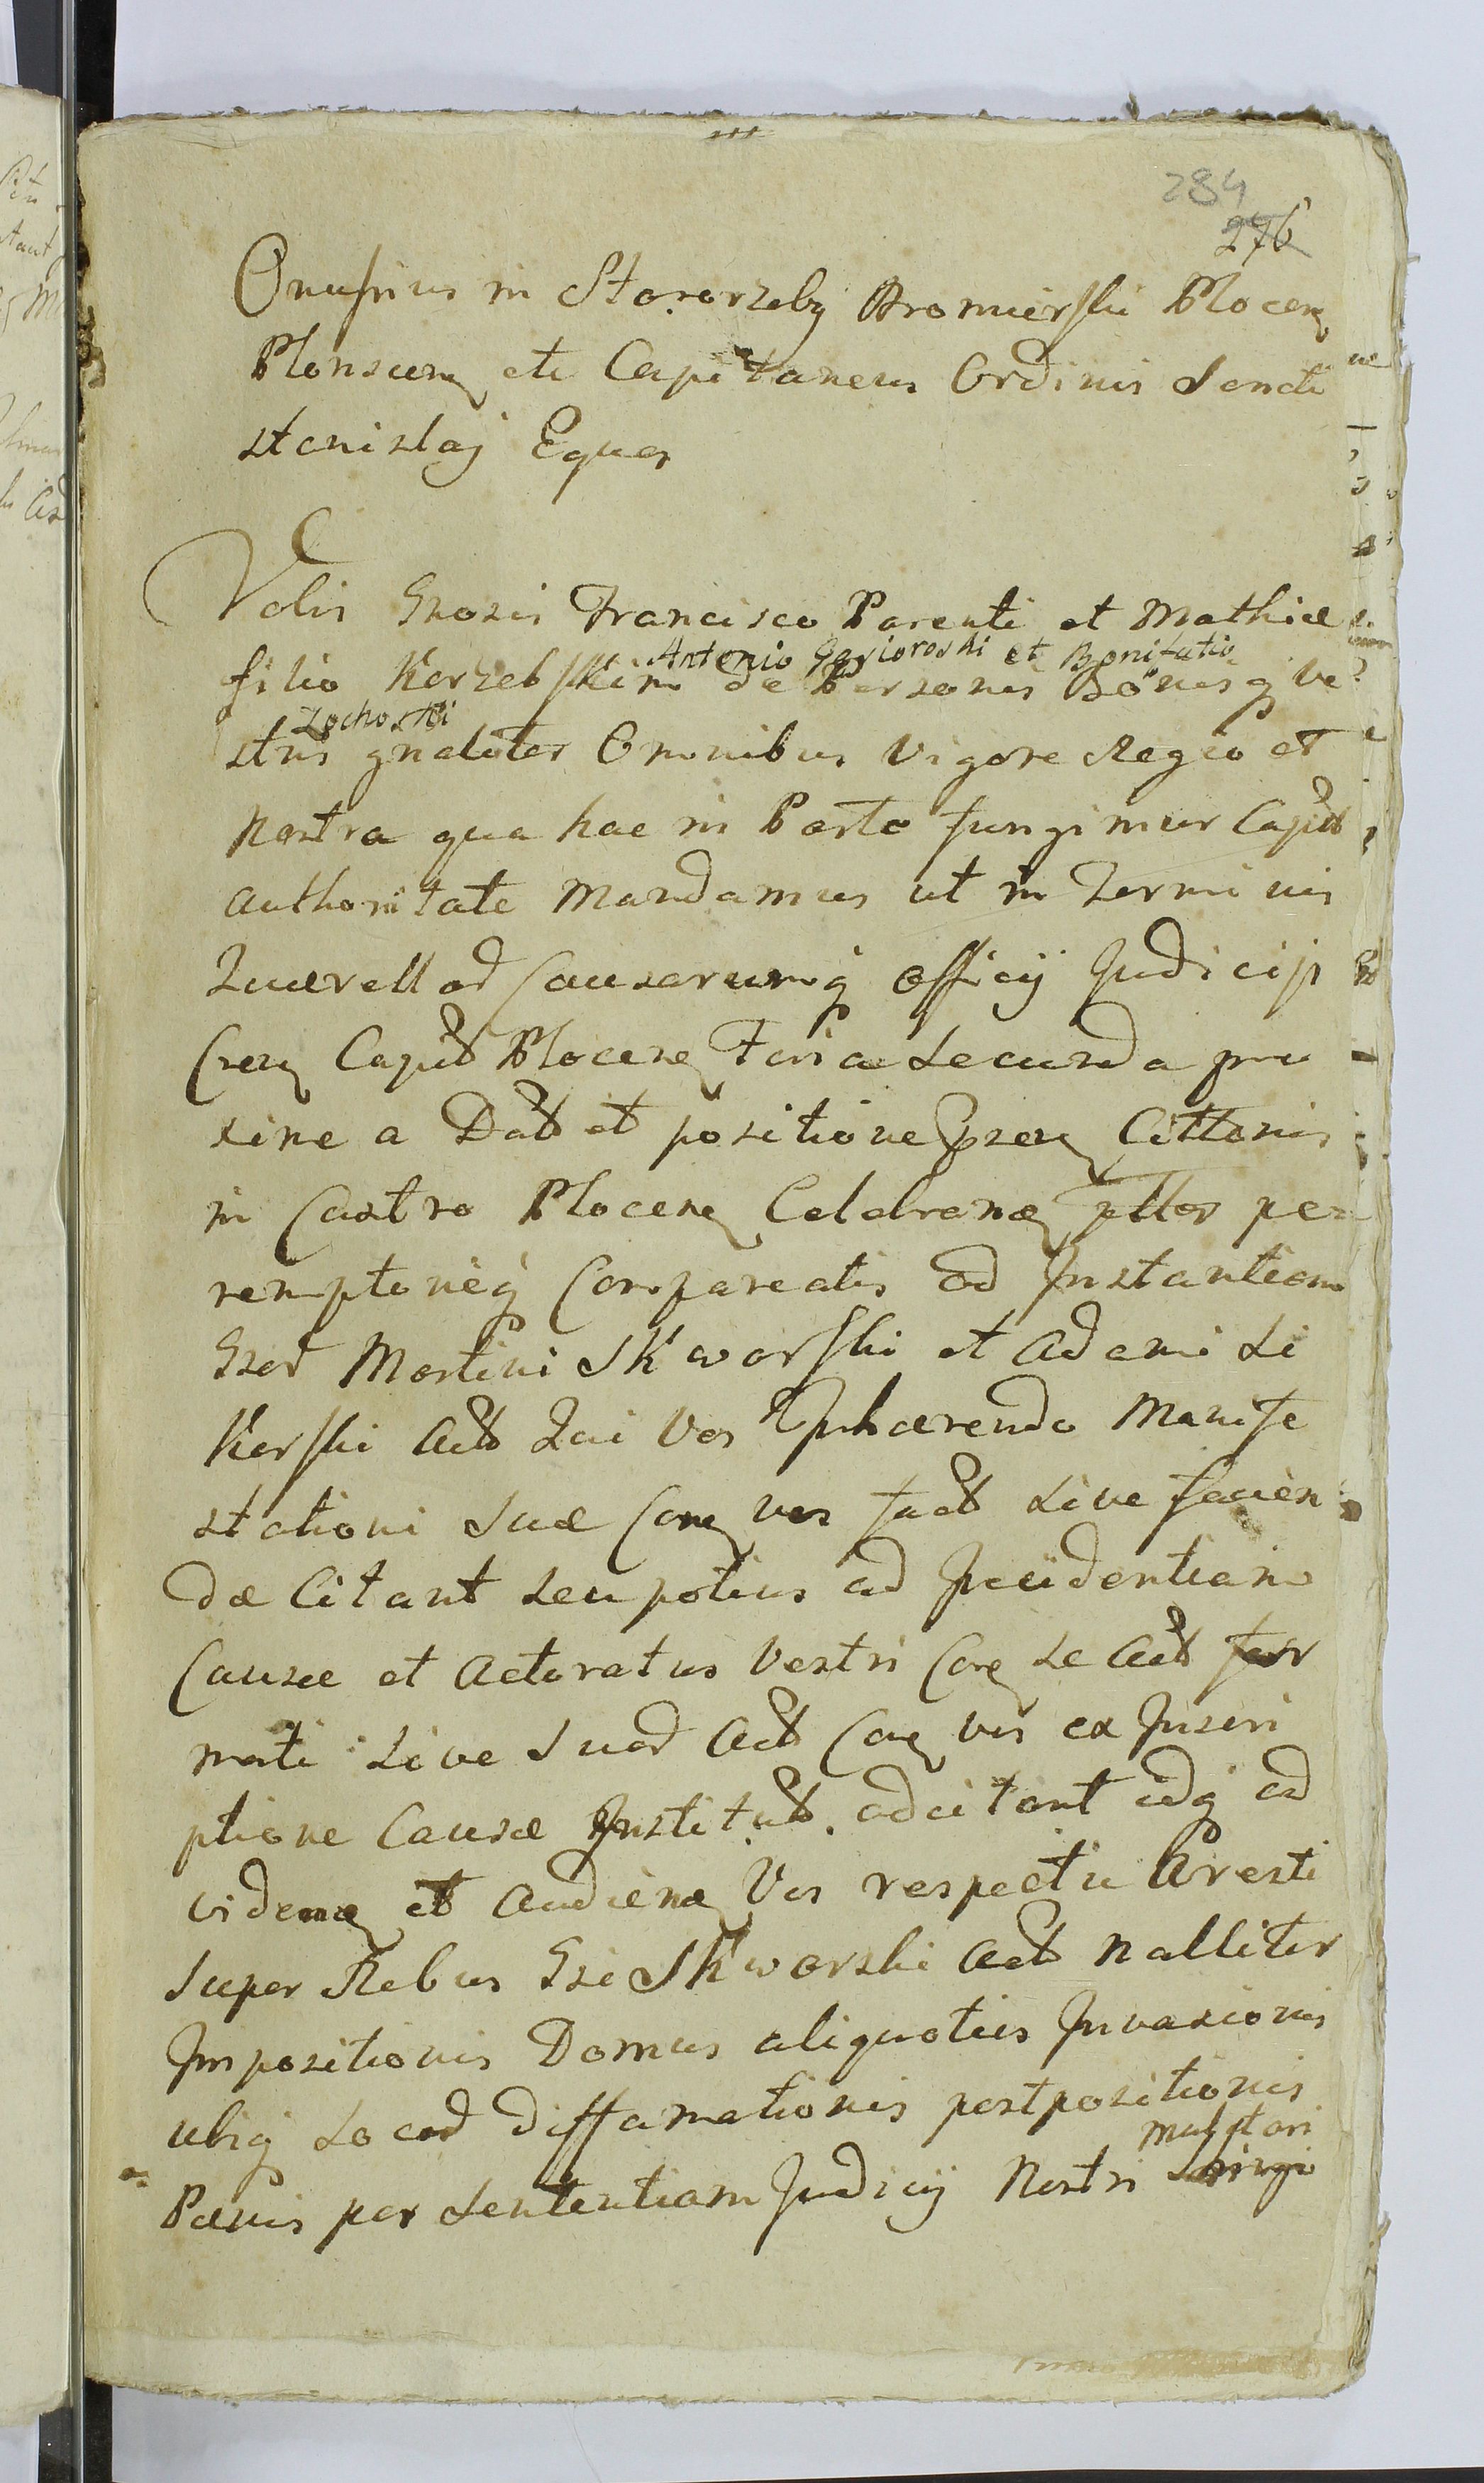 284
276
Onufrius in Starorzeby Bromierski Plocen
Plonscen etc Capitaneus Ordinis Sancti
Stanislaj Eques
Vobis Gnosis Francisco Parenti et Mathiæ
Antonio Gąsiorowski et Bonifatio
filio Karzebskim de Personis Bonisq ve
Zochoski
stris gnaliter Omnibus Vigore Regio et
Nostra qua hac in Parte fungimur Capit
Authoritate Mandamus ut in Termi nis
Querellar Causarumq Officij Judicij
Cren Capit Plocen Feria Secunda pro
xime a Dat et positione Præn Cittonis
in Castro Plocen Celebran pttor per
remptorieq Compareatis ad Instantiam
Gsor Martini Skworski et Adami Si
Korski Act Qui Vos Inhærendo Manife
stationi Suæ Con vos fact Sive facien
dæ Citant Seu potius ad Incidentiam
Causæ et Actoratus Vestri Con Se Act for
mati Sive Suor Act Con vos ex Inscri
ptione Causæ Institut. adcitant idq ad
viden et Audien Vos respectu Aresti
Super Rebus Gsi Skworski Act nalliter
Impositionis Domus aliquoties Invasionis
ubiq Locor diffamationis postpositionis
mulctari
Pænis per Sententiam Judicij Nostri